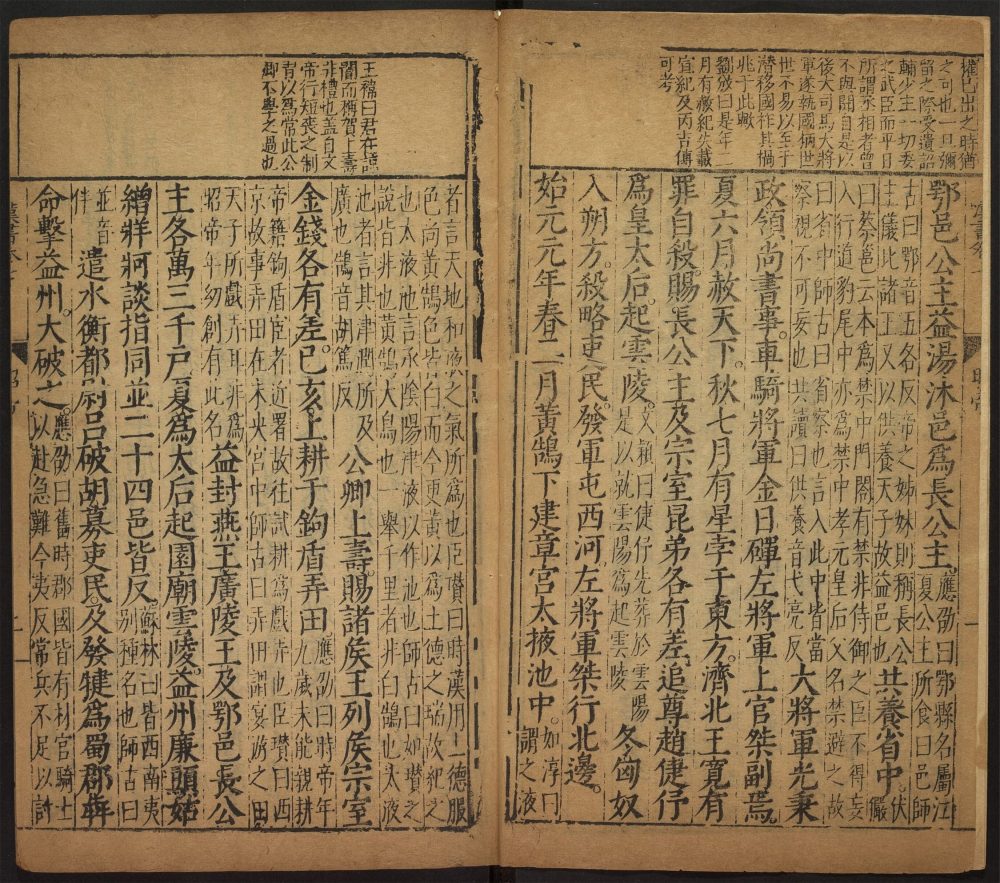 權已出之時猶
之可也一旦彌
留之際受遺詔
輔少主一切委
之武臣而平日
所謂丞相者曾
不與聞自是以
後大司馬大將
軍遂執國柄世
世不易以至于
潛移國祚其禍
兆于此歟
劉攽曰是年二
月有赦紀失載
宜紀及丙吉傳
可考
鄂邑公主益湯沐邑為長公主應劭曰鄂縣名屬江
夏公主所食曰邑師
古曰鄂音五各反帝之姊妹則稱長公
主儀比諸王又以供養天子故益邑也共養省中伏
儼
曰蔡邕云本為禁中門閤有禁非侍御之臣不得妄
入行道豹尾中亦為禁中孝元皇后父名禁避之故
曰省中師古曰省察也言入此中皆當
察視不可妄也共讀曰供養音弋亮反大將軍光秉
政領尚書事車騎將軍金日磾左將軍上官桀副焉
夏六月赦天下。秋七月有星孛于東方。濟北王寬有
罪自殺。賜長公主及宗室昆弟各有差。追尊趙倢伃
為皇太后。起雲陵。文穎曰倢伃先葬於雲陽
是以就雲陽為起雲陵冬匈奴
入朔方。殺略吏民。發軍屯西河左將軍桀行北邊。
始元元年春二月黃鵠下建章宮太掖池中。如淳曰
謂之液
王褘曰君在諒
闇而稱賀上壽
非禮也蓋自文
帝行短喪之制
習以為常此公
卿不學之過也
者言天地和液之氣所為也臣瓚曰時漢用土德服
色尚黃鵠色皆白而今更黃以為土德之瑞故紀之
也太液池言承陰陽津液以作池也師古曰如瓚之
說皆非也黃鵠大鳥也一舉千里者非白鵠也太液
池者言其津潤所及
廣也鵠音胡篤反公卿上壽。賜諸侯王列侯宗室
金錢各有差。已亥上耕于鉤盾弄田應劭曰時帝年
九歲未能親耕
帝籍鉤盾宦者近署故往試耕為戲弄也臣瓚曰西
京故事弄田在未央宮中師古曰弄田謂宴游之田
天子所戲弄耳非為
昭帝年幼創有此名益封燕王廣陵王及鄂邑長公
主各萬三千戶夏為太后起園廟雲陵。益州廉頭姑
繒牂牁談指同並二十四邑皆反。蘇林曰皆西南夷
別種名也師古曰
並音
伴遣水衡都尉呂破胡募吏民。及發犍為蜀郡犇
命擊益州。大破之。應劭曰舊時郡國皆有材官騎士
以赴急難今夷反常兵不足以討